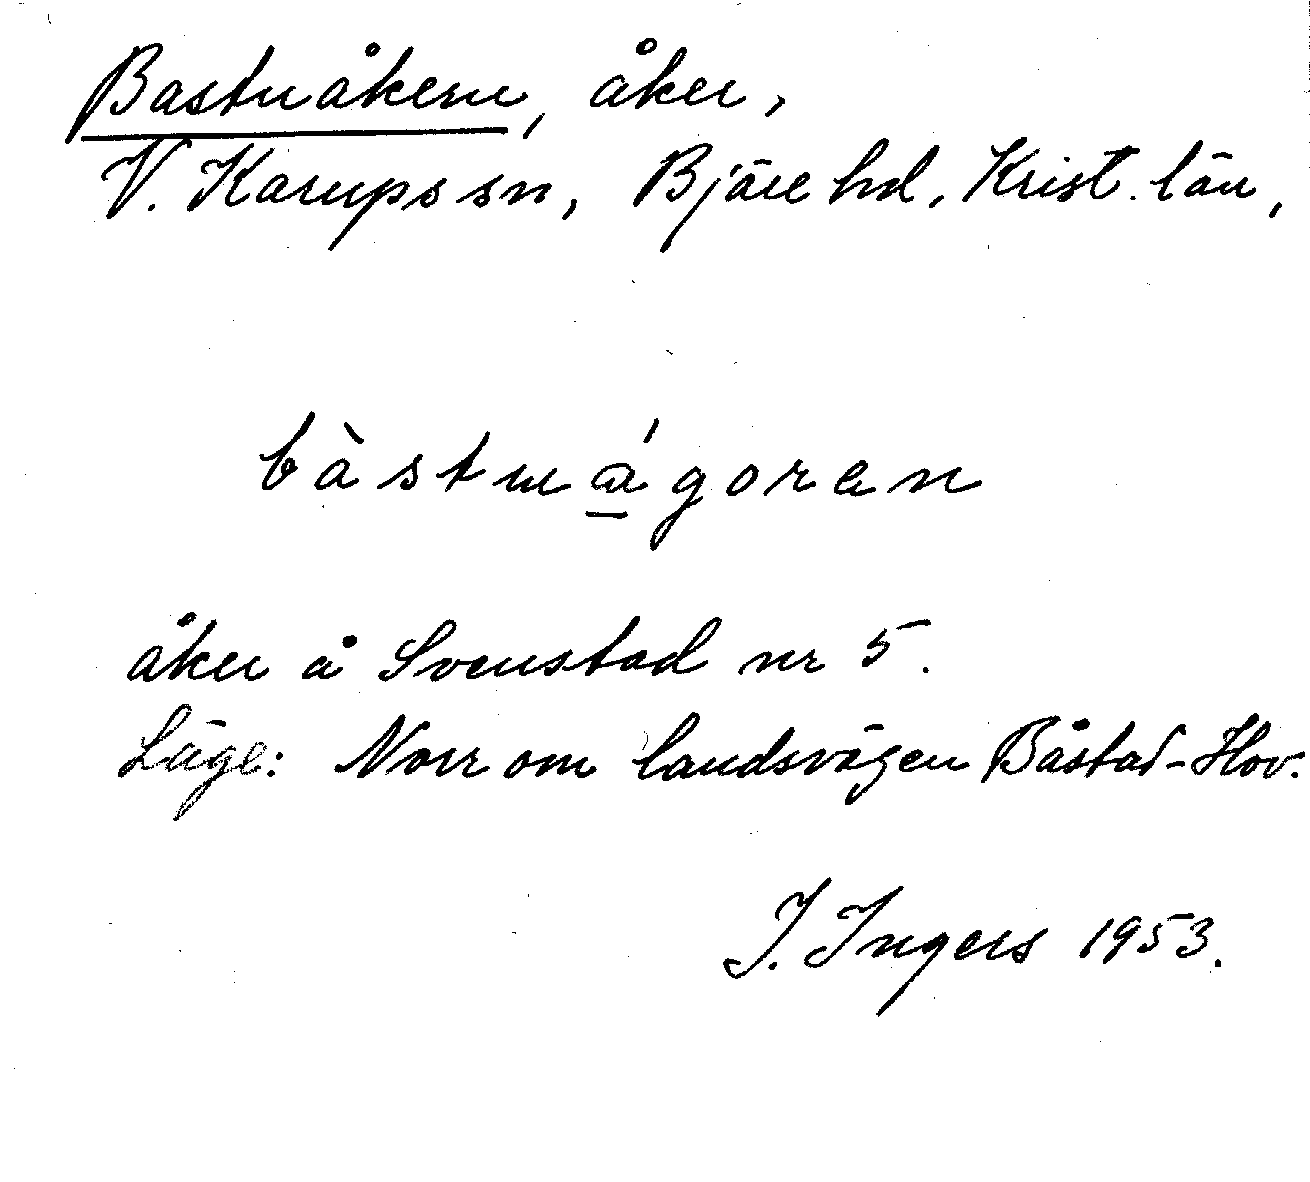 Bastuåkern, åker,
V. Karups sn, Bjäre hd, Krist. län,
bàstuágoran
åker å Svenstad nr 5.
Läge: Norr om landsvägen Båstad-Hov.
I. Ingers 1953.